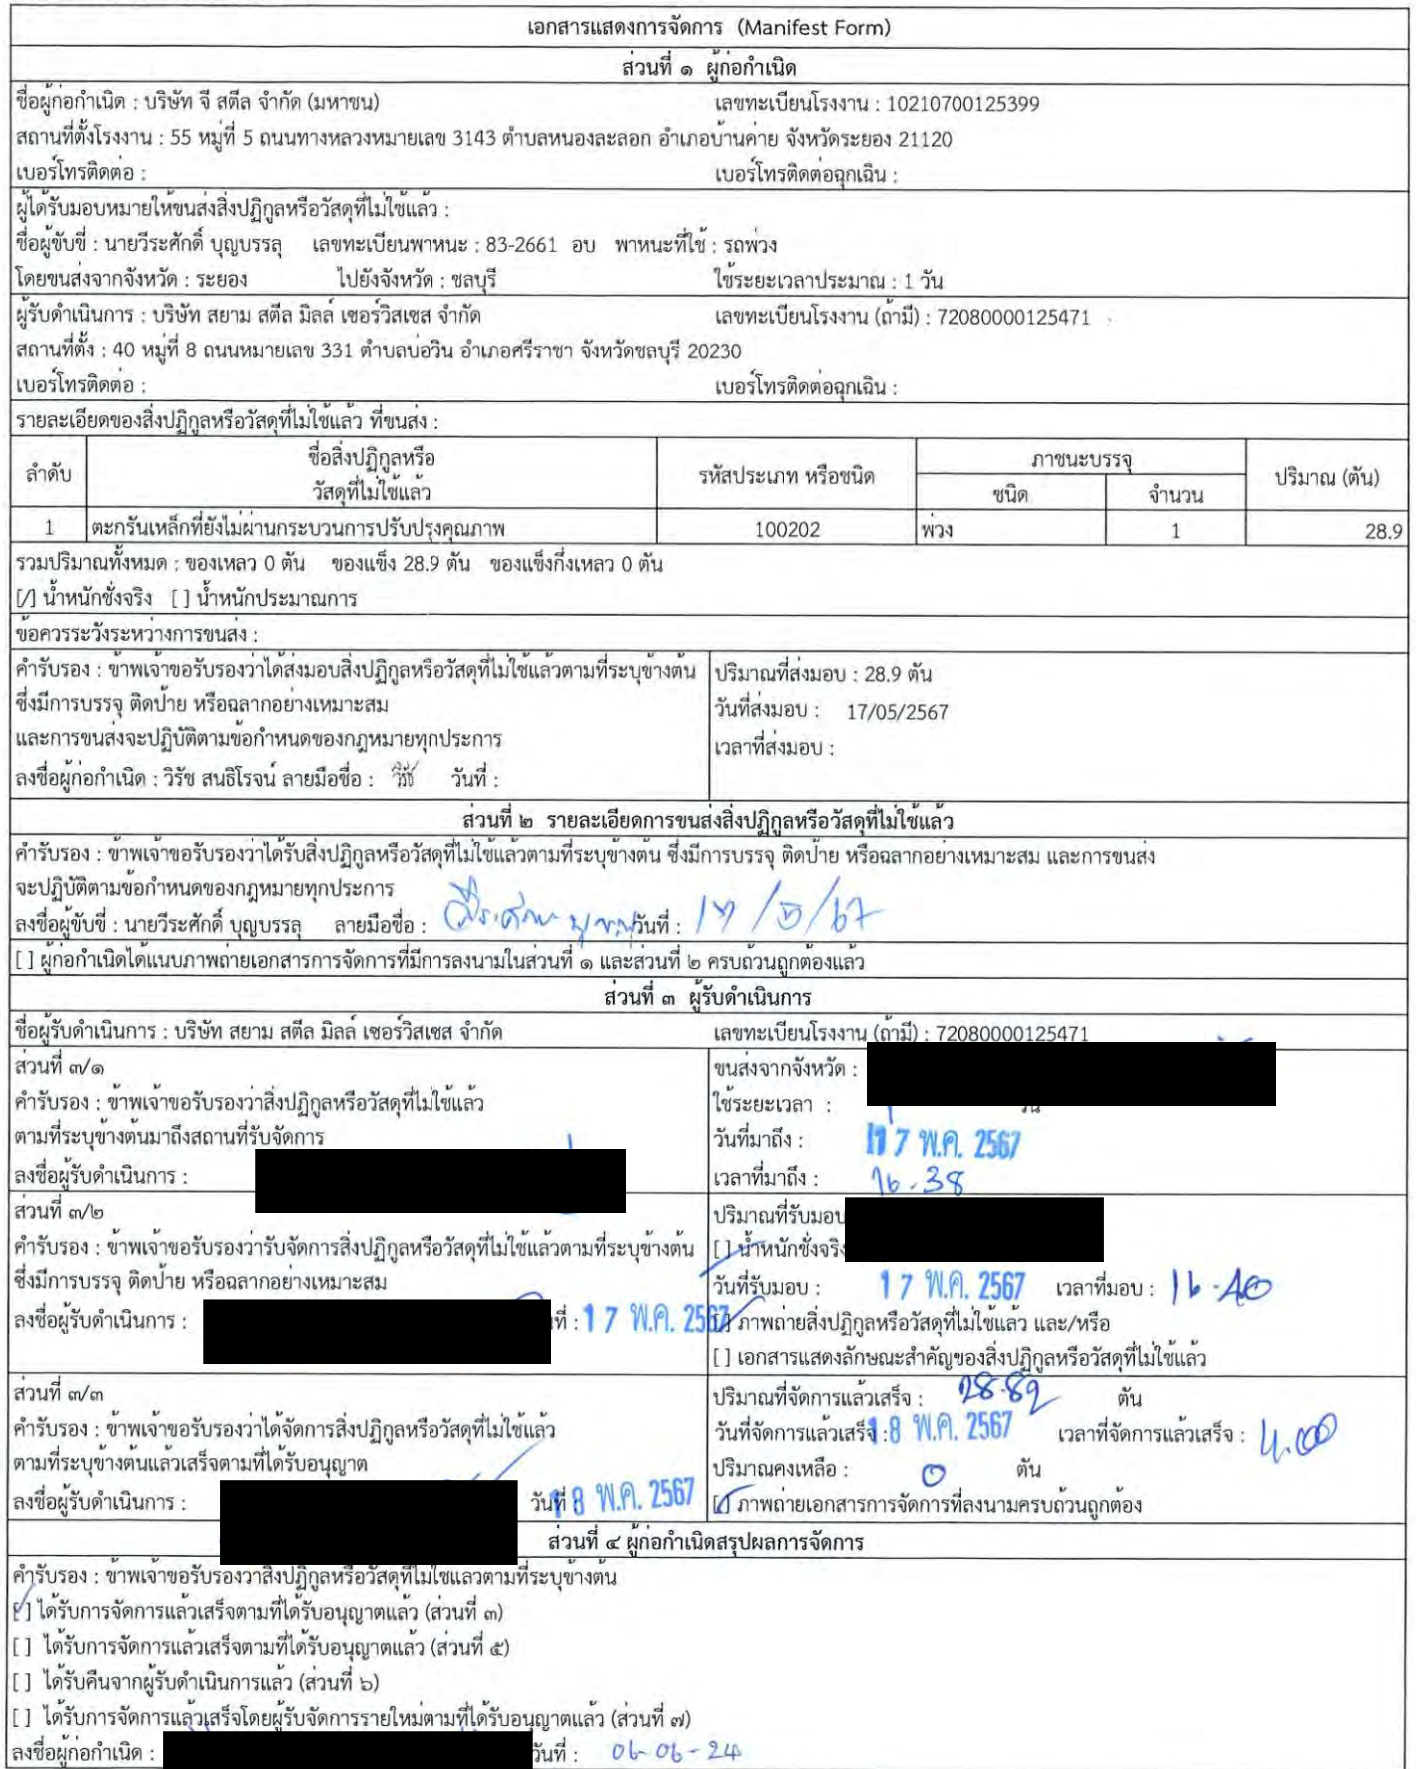 เอกสารแสดงการจัดการ (Manifest Form)
ส่วนที่ ๑ ผู้ก่อกำเนิด
ชื่อผู้ก่อกำเนิด : บริษัท จี สตีล จำกัด (มหาชน) เลขทะเบียนโรงงาน : 10210700125399
สถานที่ตั้งโรงงาน : 55 หมู่ที่ 5 ถนนทางหลวงหมายเลข 3143 ตำบลหนองละลอก อำเภอบ้านค่าย จังหวัดระยอง 21120
เบอร์โทรติดต่อ : เบอร์โทรติดต่อฉุกเฉิน :
ผู้ได้รับมอบหมายให้ขนส่งสิ่งปฏิกูลหรือวัสดุที่ไม่ใช้แล้ว :
ชื่อผู้ขับขี่ : นายวีระศักดิ์ บุญบรรลุ เลขทะเบียนพาหนะ : 83-2661 อบ พาหนะที่ใช้ : รถพ่วง
โดยขนส่งจากจังหวัด : ระยอง ไปยังจังหวัด : ชลบุรี ใช้ระยะเวลาประมาณ : 1 วัน
ผู้รับดำเนินการ : บริษัท สยาม สตีล มิลล์ เซอร์วิสเซส จำกัด เลขทะเบียนโรงงาน (ถ้ามี) : 72080000125471
สถานที่ตั้ง : 40 หมู่ที่ 8 ถนนหมายเลข 331 ตำบลบ่อวิน อำเภอศรีราชา จังหวัดชลบุรี 20230
เบอร์โทรติดต่อ : เบอร์โทรติดต่อฉุกเฉิน :
รายละเอียดของสิ่งปฏิกูลหรือวัสดุที่ไม่ใช้แล้ว ที่ขนส่ง :
ลำดับ ชื่อสิ่งปฏิกูลหรือ วัสดุที่ไม่ใช้แล้ว รหัสประเภท หรือชนิด ภาชนะบรรจุ ปริมาณ (ตัน)
ชนิด จำนวน
1 ตะกรันเหล็กที่ยังไม่ผ่านกระบวนการปรับปรุงคุณภาพ 100202 พ่วง 1 28.9
รวมปริมาณทั้งหมด : ของเหลว 0 ตัน ของแข็ง 28.9 ตัน ของแข็งกึ่งเหลว 0 ตัน
[/] น้ำหนักชั่งจริง [ ] น้ำหนักประมาณการ
ข้อควรระวังระหว่างการขนส่ง :
คำรับรอง : ข้าพเจ้าขอรับรองว่าได้ส่งมอบสิ่งปฏิกูลหรือวัสดุที่ไม่ใช้แล้วตามที่ระบุข้างต้น ปริมาณที่ส่งมอบ : 28.9 ตัน
ซึ่งมีการบรรจุ ติดป้าย หรือฉลากอย่างเหมาะสม วันที่ส่งมอบ : 17/05/2567
และการขนส่งจะปฏิบัติตามข้อกำหนดของกฎหมายทุกประการ เวลาที่ส่งมอบ :
ลงชื่อผู้ก่อกำเนิด : วิรัช สนธิโรจน์ ลายมือชื่อ : วันที่ :
ส่วนที่ ๒ รายละเอียดการขนส่งสิ่งปฏิกูลหรือวัสดุที่ไม่ใช้แล้ว
คำรับรอง : ข้าพเจ้าขอรับรองว่าได้รับสิ่งปฏิกูลหรือวัสดุที่ไม่ใช้แล้วตามที่ระบุข้างต้น ซึ่งมีการบรรจุ ติดป้าย หรือฉลากอย่างเหมาะสม และการขนส่ง
จะปฏิบัติตามข้อกำหนดของกฎหมายทุกประการ
ลงชื่อผู้ขับขี่ : นายวีระศักดิ์ บุญบรรลุ ลายมือชื่อ : วันที่ : 17/5/67
[ ] ผู้ก่อกำเนิดได้แนบภาพถ่ายเอกสารการจัดการที่มีการลงนามในส่วนที่ ๑ และส่วนที่ ๒ ครบถ้วนถูกต้องแล้ว
ส่วนที่ ๓ ผู้รับดำเนินการ
ชื่อผู้รับดำเนินการ : บริษัท สยาม สตีล มิลล์ เซอร์วิสเซส จำกัด เลขทะเบียนโรงงาน (ถ้ามี) : 72080000125471
ส่วนที่ ๓/๑ ขนส่งจากจังหวัด :
คำรับรอง : ข้าพเจ้าขอรับรองว่าสิ่งปฏิกูลหรือวัสดุที่ไม่ใช้แล้ว ใช้ระยะเวลา :
ตามที่ระบุข้างต้นมาถึงสถานที่รับจัดการ วันที่มาถึง : 17 พ.ค. 2567
ลงชื่อผู้รับดำเนินการ : เวลาที่มาถึง : 16.38
ส่วนที่ ๓/๒ ปริมาณที่รับมอบ
คำรับรอง : ข้าพเจ้าขอรับรองว่ารับจัดการสิ่งปฏิกูลหรือวัสดุที่ไม่ใช้แล้วตามที่ระบุข้างต้น [ ] น้ำหนักชั่งจริง
ซึ่งมีการบรรจุ ติดป้าย หรือฉลากอย่างเหมาะสม วันที่รับมอบ : 17 พ.ค. 2567 เวลาที่มอบ : 16.40
ลงชื่อผู้รับดำเนินการ : ที่ : 17 พ.ค. 2567 [/] ภาพถ่ายสิ่งปฏิกูลหรือวัสดุที่ไม่ใช้แล้ว และ/หรือ
[ ] เอกสารแสดงลักษณะสำคัญของสิ่งปฏิกูลหรือวัสดุที่ไม่ใช้แล้ว
ส่วนที่ ๓/๓ ปริมาณที่จัดการแล้วเสร็จ : 28.82 ตัน
คำรับรอง : ข้าพเจ้าขอรับรองว่าได้จัดการสิ่งปฏิกูลหรือวัสดุที่ไม่ใช้แล้ว วันที่จัดการแล้วเสร็จ : 18 พ.ค. 2567 เวลาที่จัดการแล้วเสร็จ : 4.00
ตามที่ระบุข้างต้นแล้วเสร็จตามที่ได้รับอนุญาต ปริมาณคงเหลือ : 0 ตัน
ลงชื่อผู้รับดำเนินการ : วันที่ 18 พ.ค. 2567 [/] ภาพถ่ายเอกสารการจัดการที่ลงนามครบถ้วนถูกต้อง
ส่วนที่ ๔ ผู้ก่อกำเนิดสรุปผลการจัดการ
คำรับรอง : ข้าพเจ้าขอรับรองว่าสิ่งปฏิกูลหรือวัสดุที่ไม่ใช้แล้วตามที่ระบุข้างต้น
[/] ได้รับการจัดการแล้วเสร็จตามที่ได้รับอนุญาตแล้ว (ส่วนที่ ๓)
[ ] ได้รับการจัดการแล้วเสร็จตามที่ได้รับอนุญาตแล้ว (ส่วนที่ ๕)
[ ] ได้รับคืนจากผู้รับดำเนินการแล้ว (ส่วนที่ ๖)
[ ] ได้รับการจัดการแล้วเสร็จโดยผู้รับจัดการรายใหม่ตามที่ได้รับอนุญาตแล้ว (ส่วนที่ ๗)
ลงชื่อผู้ก่อกำเนิด : วันที่ : 06-06-24